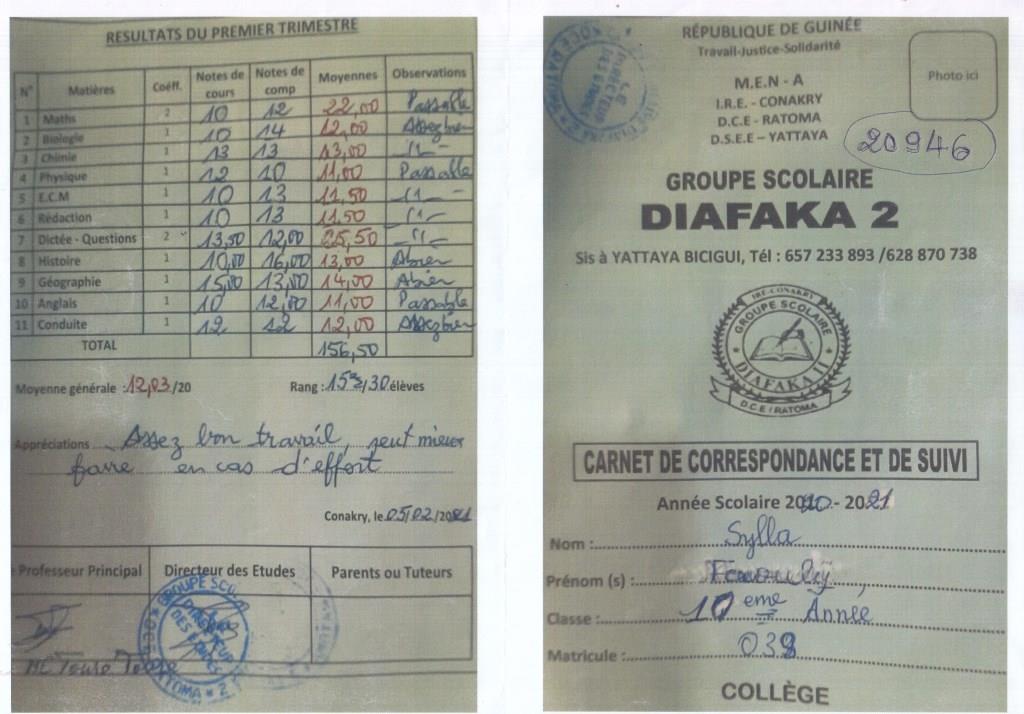 RESULTATS DU PREMIER TRIMESTRE
N° Matières Coéff. Notes de cours Notes de comp Moyennes Observations
1 Maths 2 10 12 22,00 Passable
2 Biologie 1 10 14 12,00 Assez bien
3 Chimie 1 13 13 13,00 -11-
4 Physique 1 12 10 11,00 Passable
5 E.C.M 1 10 13 11,50 -11-
6 Rédaction 1 10 13 11,50 -11-
7 Dictée - Questions 2 13,50 12,00 25,50 -11-
8 Histoire 1 10,00 16,00 13,00 Abien
9 Géographie 1 15,00 13,00 14,00 Abien
10 Anglais 1 10 12,00 11,00 Passable
11 Conduite 1 12 12 12,00 Assez bien
TOTAL 156,50
Moyenne générale :12,03/20 Rang : 15e/30 élèves
Appréciations Assez bon travail, peut mieux
faire en cas d'effort
Conakry, le 05/02/2021
Professeur Principal Directeur des Etudes Parents ou Tuteurs
RÉPUBLIQUE DE GUINÉE
Travail-Justice-Solidarité
Photo ici
M.E.N - A
I.R.E. - CONAKRY
D.C.E - RATOMA
D.S.E.E – YATTAYA
20946
GROUPE SCOLAIRE
DIAFAKA 2
Sis à YATTAYA BICIGUI, Tél : 657 233 893 /628 870 738
IRE-CONAKRY
GROUPE SCOLAIRE
DIAFAKA II
D.C.E / RATOMA
CARNET DE CORRESPONDANCE ET DE SUIVI
Année Scolaire 2020 - 2021
Nom : Sylla
Prénom (s) :
Classe : 10eme Année
Matricule : 038
COLLÈGE